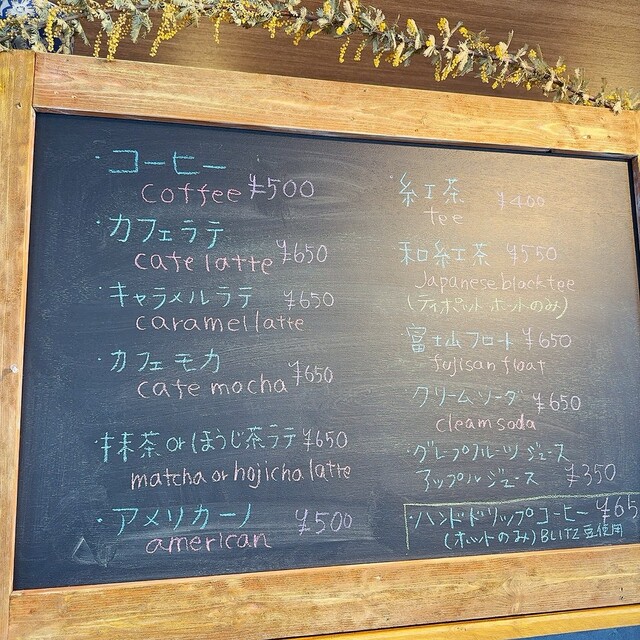 ・コーヒー
coffee ¥500
・カフェラテ
cafe latte ¥650
・キャラメルラテ ¥650
caramel latte
・カフェモカ
cafe mocha ¥650
・抹茶orほうじ茶ラテ ¥650
matcha or hojicha latte
・アメリカーノ ¥500
american
・紅茶 ¥400
tee
和紅茶 ¥550
Japanese black tee
(ティポット ホットのみ)
・富士山フロート ¥650
fujisan float
クリームソーダ ¥650
cleam soda
・グレープフルーツジュース
アップルジュース ¥350
・ハンドドリップコーヒー ¥65
(ホットのみ) BLITZ豆使用